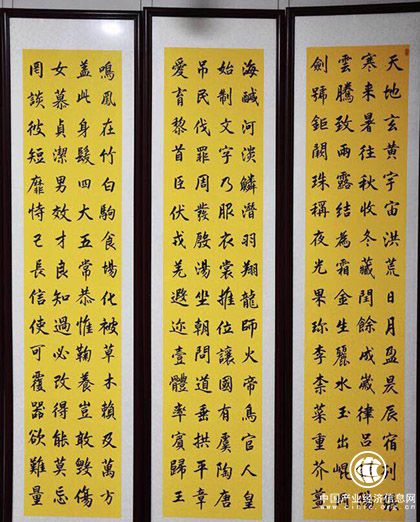 天地玄黃宇宙洪荒日月盈昃辰宿列
寒来暑往秋收冬藏閏餘成歲律呂
雲騰致雨露結為霜金生麗水玉出崐
劍號鉅闕珠稱夜光果珍李柰菜重芥薑
海鹹河淡鱗潛羽翔龍師火帝鳥官人皇
始制文字乃服衣裳推位讓國有虞陶唐
吊民伐罪周發殷湯坐朝問道垂拱平章
愛育黎首臣伏戎羌遐邇壹體率賓歸王
鳴鳳在竹白駒食場化被草木賴及萬方
蓋此身髮四大五常恭惟鞠養豈敢毀傷
女慕貞潔男效才良知過必改得能莫忘
罔談彼短靡恃己長信使可覆器欲難量
中国产业经济信息网
www.cinic.org.cn